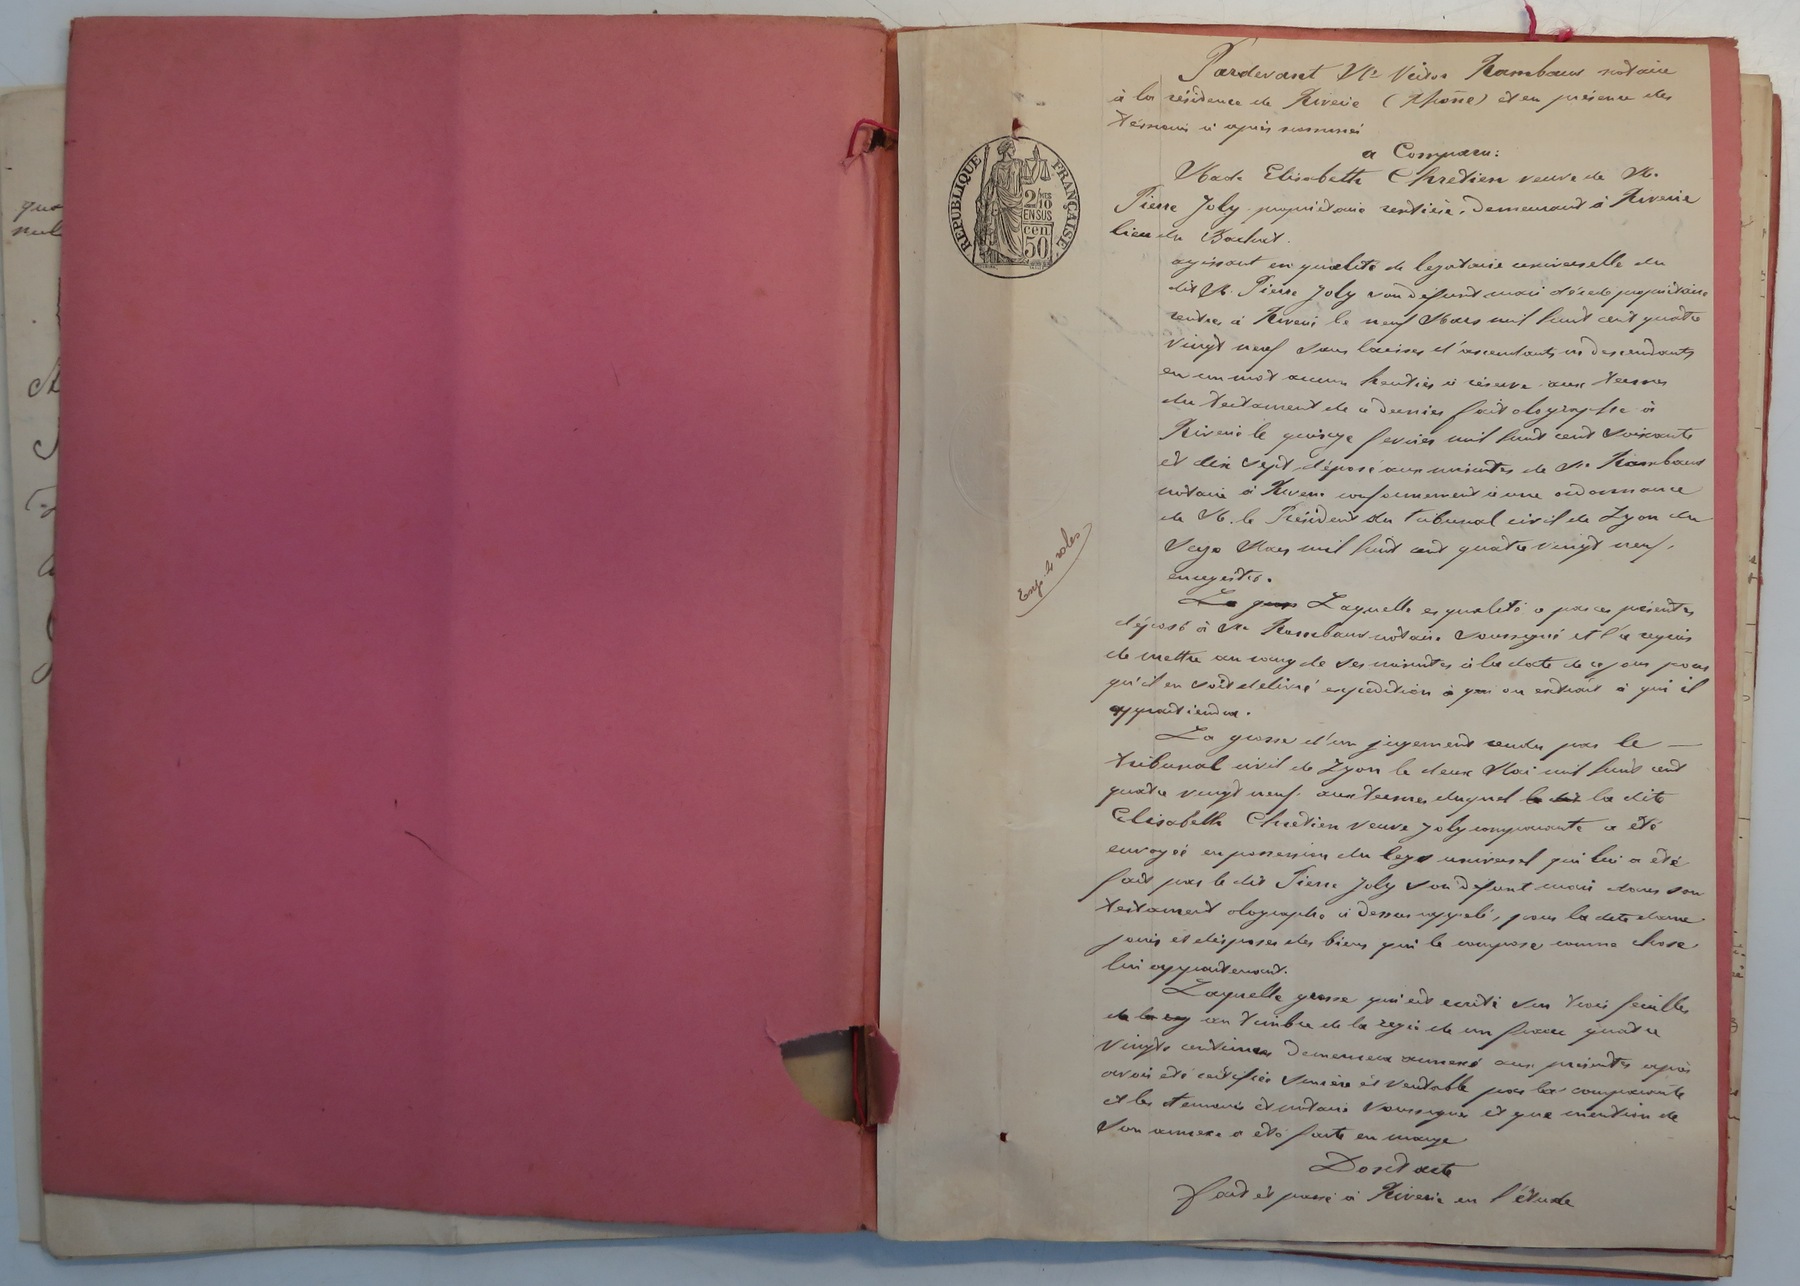 Pardevant Me Victor Rambaud notaire
à la résidence de Riverie (Rhône) et en présence des
témoins ci après nommés
a Comparu:
Made Elisabeth Chrétien veuve de M.
Pierre Joly propriétaire rentière, demeurant à Riverie
lieu du
REPUBLIQUE FRANÇAISE
2/10
EN SUS
cen
50
agissant en qualité de légataire universelle du
dit M. Pierre Joly son défunt mari décédé propriétaire
rentier à Riverie le neuf Mars mil huit cent quatre
vingt neuf sans laisser d'ascendants ni descendants
en un mot aucun héritier à réserve aux termes
du testament de ce dernier fait olographe à
Riverie le quinze fevrier mil huit cent soixante
et dix sept déposé aux minutes de Me Rambaud
notaire à Riverie conformément à une ordonnance
de M. le Président du tribunal civil de Lyon du
seize Mars mil huit cent quatre vingt neuf,
enregistré.
Exp. 4 roles
Laquelle es qualité a par ces présentes
déposé à Me Rambaud notaire soussigné et l'a requis
de mettre au rang de ses minutes à la date de ce jour pour
qu'il en soit délivré expédition ou extrait à qui il
appartiendra.
La grosse d'un jugement rendu par le —
tribunal civil de Lyon le deux Mai mil huit cent
quatre vingt neuf aux termes duquel la dite
Elisabeth Chrétien veuve Joly comparante a été
envoyée en possession du legs universel qui lui a été
fait par le dit Pierre Joly son défunt mari dans son
testament olographe ci dessus rappelé, pour la dite dame
jouir et disposer des biens qui le compose comme chose
lui appartenant.
Laquelle grosse qui est ecrite sur trois feuilles
au timbre de la regie de un franc quatre
vingts centimes demeurera annexé aux présentes après
avoir été certifiée sincère et véritable par la comparante
et les témoins et notaire soussignés et que mention de
son annexe a été faite en marge
Dont acte
fait et passé à Riverie en l'étude